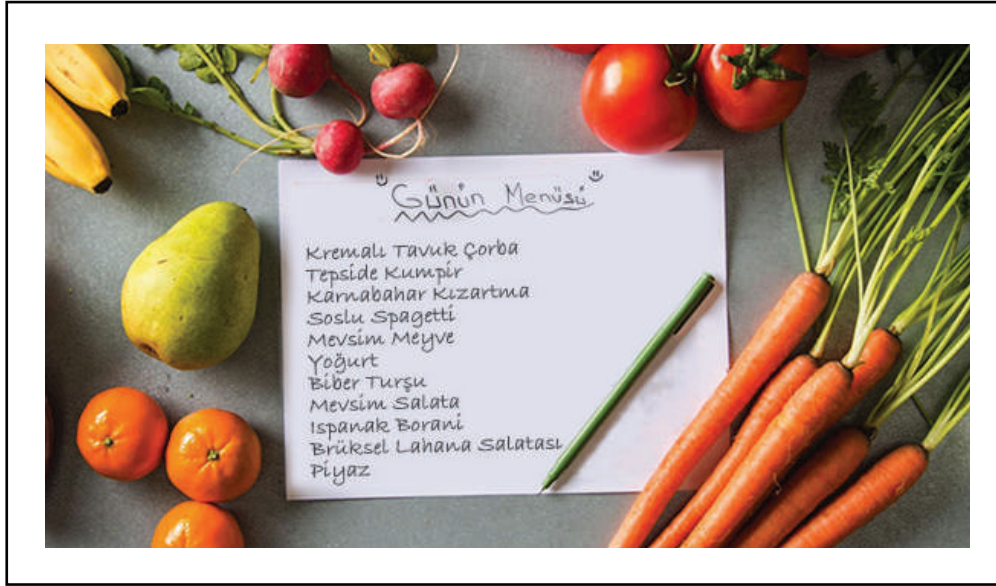 Günün Menüsü
Kremalı Tavuk Çorba
Tepside Kumpir
Karnabahar Kızartma
Soslu Spagetti
Mevsim Meyve
Yoğurt
Biber Turşu
Mevsim Salata
Ispanak Borani
Brüksel Lahana Salatası
Piyaz